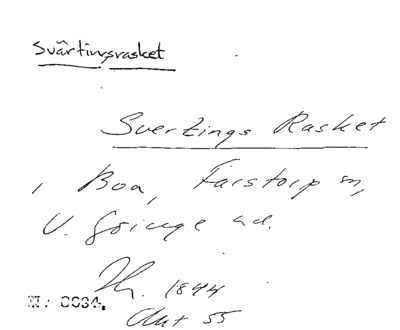 Svärtingsrasket
Svertings Rasket
, Boa, Farstorp sn,
V. Göinge hd.
Th. 1844
N: 0034.
Akt 55